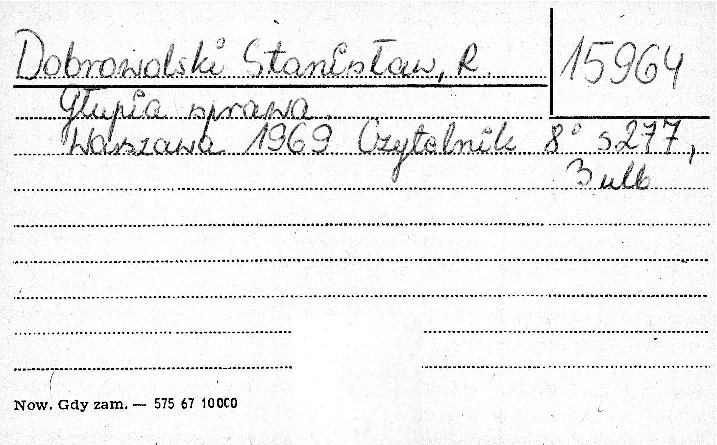 Dobrowolski Stanisław, R.
15964
Głupia sprawa.
Warszawa 1969 Czytelnik 8° s 277,
3 ulb
Now. Gdy zam. — 575 67 10000